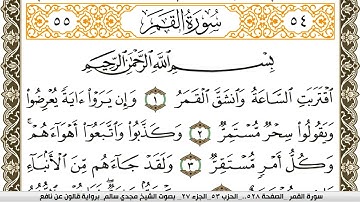 ٥٥ سُورَةُ الْقَمَرِ ٥٤
بِسْمِ اللَّهِ الرَّحْمَٰنِ الرَّحِيمِ
اقْتَرَبَتِ السَّاعَةُ وَانشَقَّ الْقَمَرُ ١ وَإِن يَرَوْاْ ءَايَةً يُعْرِضُواْ
وَيَقُولُواْ سِحْرٌ مُّسْتَمِرٌّ ٢ وَكَذَّبُواْ وَاتَّبَعُواْ أَهْوَآءَهُمْ
وَكُلُّ أَمْرٍ مُّسْتَقِرٌّ ٣ وَلَقَدْ جَآءَهُم مِّنَ الْأَنۢبَآءِ
سورة القمر _ الصفحة ٥٢٨ .. الحزب ٥٣_الجزء ٢٧ _ بصوت الشيخ مجدي سالم_ برواية قالون عن نافع